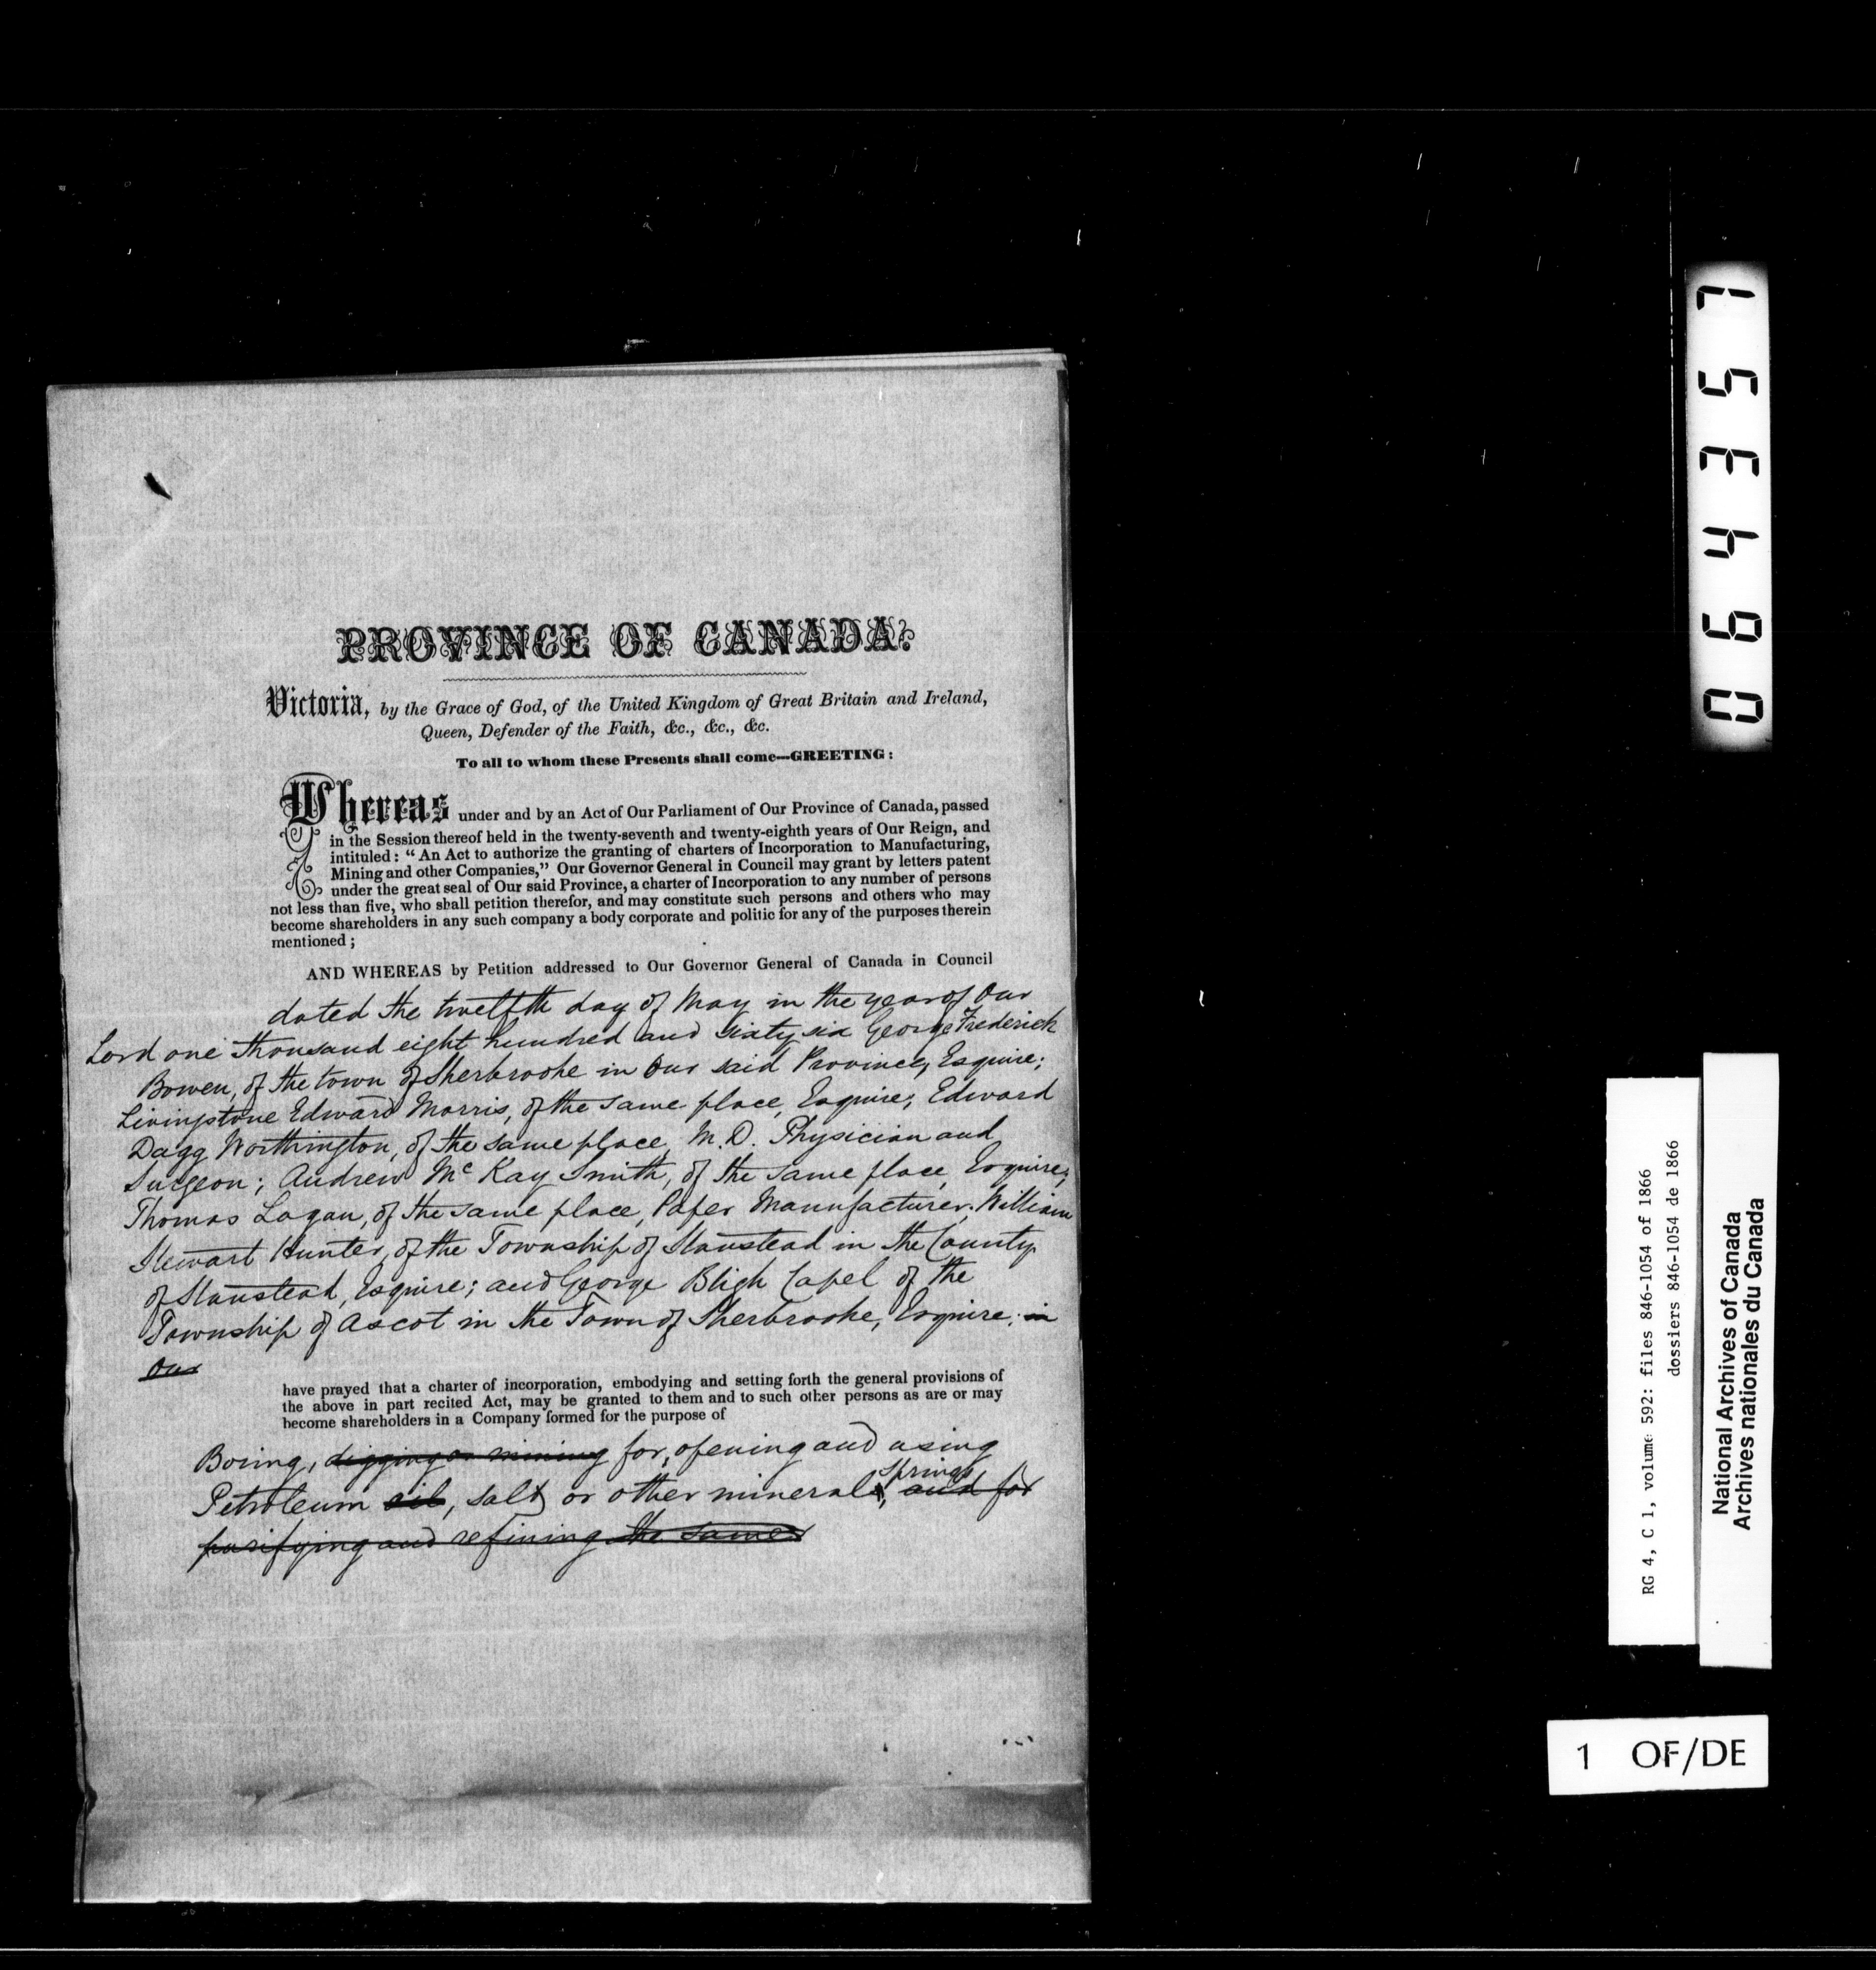 PROVINCE OF CANADA.
Victoria, by the Grace of God, of the United Kingdom of Great Britain and Ireland,
Queen, Defender of the Faith, &c., &c., &c.
To all to whom these Presents shall come—GREETING:
Whereas under and by an Act of Our Parliament of Our Province of Canada, passed
in the Session thereof held in the twenty-seventh and twenty-eighth years of Our Reign, and
intituled: "An Act to authorize the granting of charters of Incorporation to Manufacturing,
Mining and other Companies," Our Governor General in Council may grant by letters patent
under the great seal of Our said Province, a charter of Incorporation to any number of persons
not less than five, who shall petition therefor, and may constitute such persons and others who may
become shareholders in any such company a body corporate and politic for any of the purposes therein
mentioned;
AND WHEREAS by Petition addressed to Our Governor General of Canada in Council
dated the twelfth day of May in the year of Our
Lord one thousand eight hundred and sixty six George Frederick
Bowen, of the town of Sherbrooke in Our said Province, Esquire;
Livingstone Edward Morris, of the same place, Esquire; Edward
Dagg Worthington, of the same place, M.D. Physician and
Surgeon; Andrew Mc Kay Smith, of the same place, Esquire;
Thomas Logan, of the same place, Paper Manufacturer; William
Stewart Hunter, of the Township of Stanstead in the County
of Stanstead, Esquire; and George Bligh Capel of the
Township of Ascot in the Town of Sherbrooke, Esquire; in
Our
have prayed that a charter of incorporation, embodying and setting forth the general provisions of
the above in part recited Act, may be granted to them and to such other persons as are or may
become shareholders in a Company formed for the purpose of
Boring, digging or mining for, opening and using
springs
Petroleum oil, salt or other minerals, and for
purifying and refining the same
0 6 4 3 5 7
RG 4, C 1, volume 592: files 846-1054 of 1866
dossiers 846-1054 de 1866
National Archives of Canada
Archives nationales du Canada
1 OF/DE